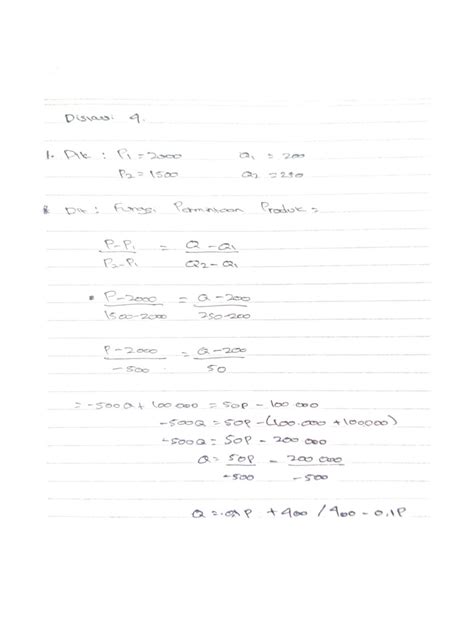 Diskusi 4.
1. Dik : P1 = 2000 Q1 = 200
P2 = 1500 Q2 = 250
Dit : Fungsi Permintaan Produk =
P-P1 / P2-P1 = Q-Q1 / Q2-Q1
• P-2000 / 1500-2000 = Q-200 / 250-200
P-2000 / -500 = Q-200 / 50
= -500Q + 100 000 = 50P - 100 000
-500Q = 50P - (100.000 + 100000)
-500Q = 50P - 200 000
Q = 50P / -500 - 200 000 / -500
Q = -0,1P + 400 / 400 - 0,1P